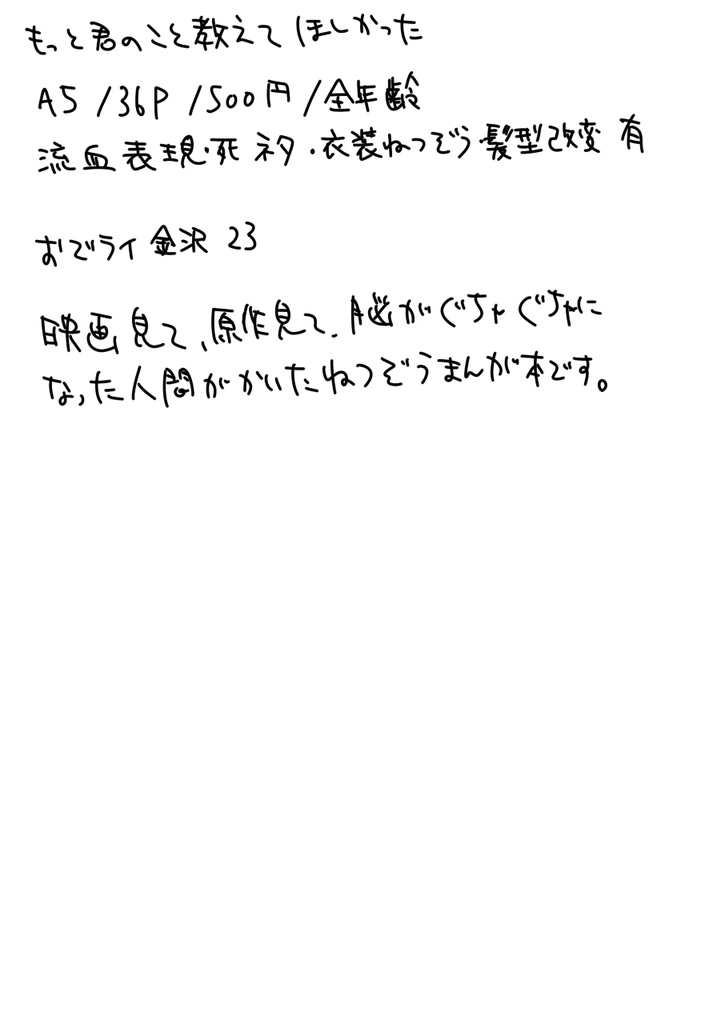 もっと君のこと教えてほしかった
A5/36P/500円/全年齢
流血表現・死ネタ・衣装ねつぞう髪型改変有
おでライ金沢23
映画見て、原作見て、脳がぐちゃぐちゃに
なった人間がかいたねつぞうまんが本です。